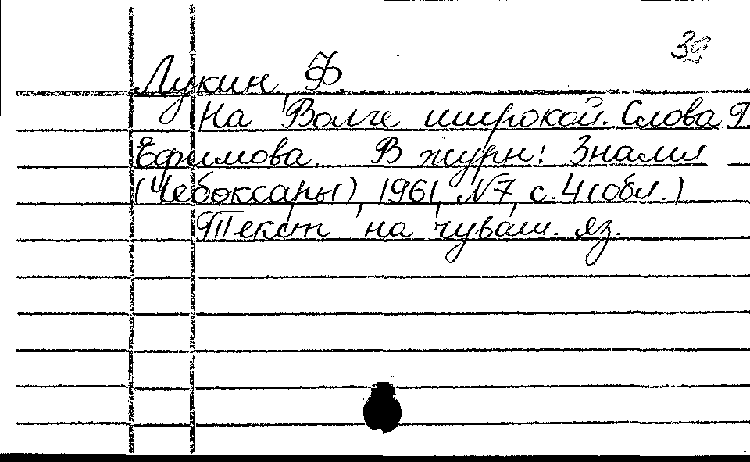 39
Лукин, Ф.
На Волге широкой. Слова Г.
Ефимова. В журн: Знамя
(Чебоксары), 1961, №7, с. 4 (обл.)
Текст на чуваш. яз.